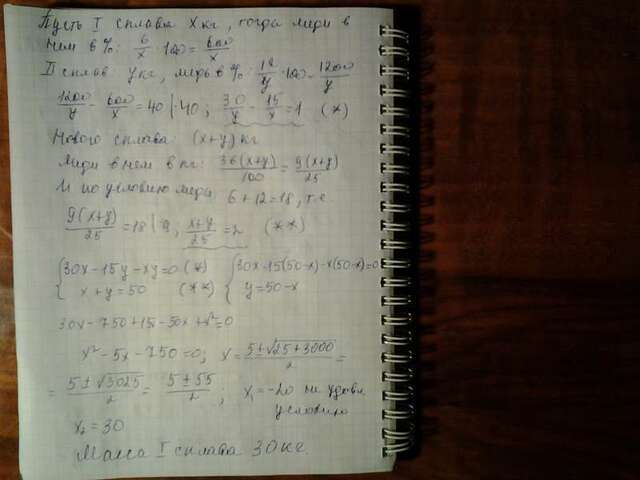 Пусть I сплава x кг, тогда меди в
нем в %: 6/x · 100 = 600/x
II сплав: y кг, медь в %: 12/y · 100 = 1200/y
1200/y - 600/x = 40 | :40 ; 30/y - 15/x = 1 (*)
Нового сплава: (x+y) кг
Меди в нем в кг: 36(x+y)/100 = 9(x+y)/25
И по условию меди 6 + 12 = 18, т.е.
9(x+y)/25 = 18 | :9, (x+y)/25 = 2 (**)
{30x - 15y - xy = 0 (*) {30x - 15(50-x) - x(50-x) = 0
x + y = 50 (**) y = 50 - x
30x - 750 + 15x - 50x + x² = 0
x² - 5x - 750 = 0; x = (5 ± √25 + 3000)/2 =
= (5 ± √3025)/2 = (5 ± 55)/2, x₁ = -20 не удовл.
условию
x₂ = 30
Масса I сплава 30 кг.